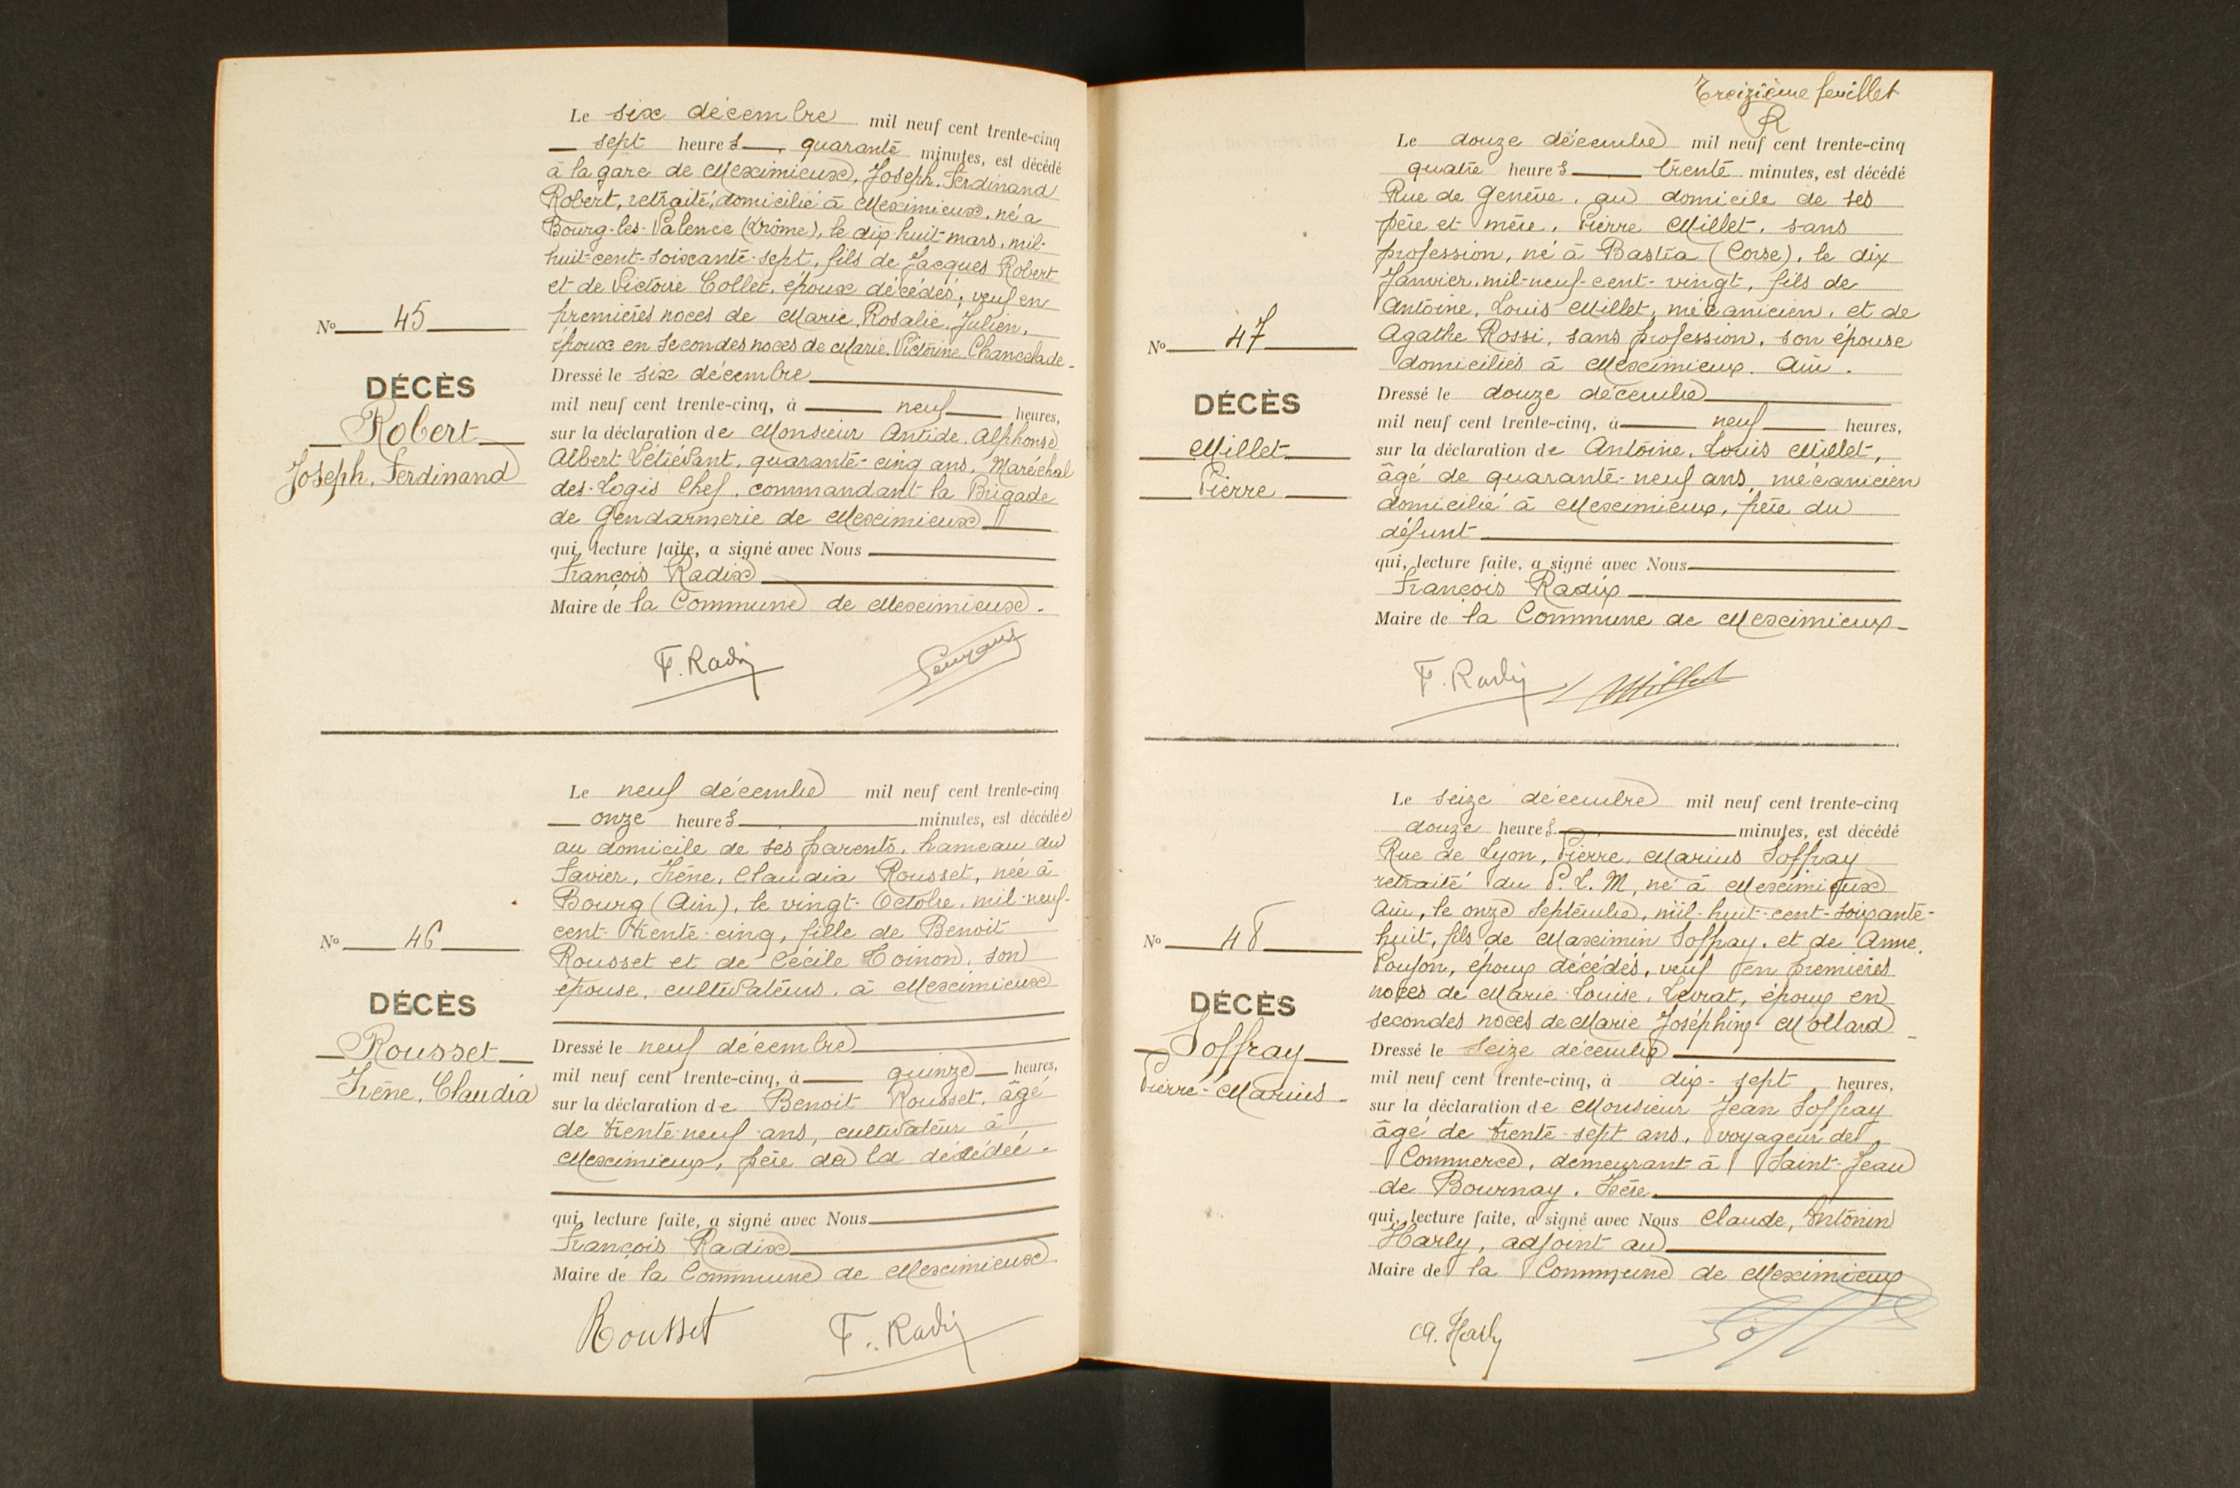 Le six décembre mil neuf cent trente-cinq
sept heures, quarante minutes, est décédé
à la gare de Meximieux, Joseph, Ferdinand
Robert, retraité, domicilié à Meximieux, né à
Bourg-les-Valence (Drôme), le dix huit mars, mil-
huit-cent-soixante-sept, fils de Jacques Robert
et de Victoire Collet, époux décédés, veuf en
premières noces de Marie, Rosalie, Julien,
époux en secondes noces de Marie, Victorine Chancelade.
Dressé le six décembre
mil neuf cent trente-cinq, à neuf heures,
sur la déclaration de Monsieur Antide, Alphonse
Albert Létiévant, quarante-cinq ans, Maréchal
des-Logis Chef, commandant la Brigade
de Gendarmerie de Meximieux
qui, lecture faite, a signé avec Nous
François Radix
Maire de la Commune de Meximieux.
F. Radix
No 45
DÉCÈS
Robert
Joseph, Ferdinand
Le neuf décembre mil neuf cent trente-cinq
onze heures minutes, est décédée
au domicile de ses parents, hameau du
Favier, Irène, Claudia Rousset, née à
Bourg (Ain), le vingt-Octobre, mil-neuf-
cent-trente-cinq, fille de Benoit
Rousset et de Cécile Toinon, son
épouse, cultivateurs, à Meximieux
Dressé le neuf décembre
mil neuf cent trente-cinq, à quinze heures,
sur la déclaration de Benoit Rousset, âgé
de trente-neuf ans, cultivateur à
Meximieux, père de la décédée.
qui, lecture faite, a signé avec Nous
François Radix
Maire de la Commune de Meximieux
Rousset F. Radix
No 46
DÉCÈS
Rousset
Irène, Claudia
Treizième feuillet
R
Le douze décembre mil neuf cent trente-cinq
quatre heures trente minutes, est décédé
Rue de Genève, au domicile de ses
père et mère, Pierre Millet, sans
profession, né à Bastia (Corse), le dix
Janvier, mil-neuf-cent-vingt, fils de
Antoine, Louis Millet, mécanicien, et de
Agathe Rossi, sans profession, son épouse
domiciliés à Meximieux. Ain.
Dressé le douze décembre
mil neuf cent trente-cinq, à neuf heures,
sur la déclaration de Antoine, Louis Millet,
âgé de quarante-neuf ans, mécanicien
domicilié à Meximieux, père du
défunt
qui, lecture faite, a signé avec Nous
François Radix
Maire de la Commune de Meximieux
F. Radix Millet
No 47
DÉCÈS
Millet
Pierre
Le seize décembre mil neuf cent trente-cinq
douze heures minutes, est décédé
Rue de Lyon, Pierre, Marius Soffray
retraité du P.L.M, né à Meximieux
Ain, le onze septembre, mil-huit-cent-soixante-
huit, fils de Maximin Soffray, et de Anne
Poujon, époux décédés, veuf en premières
noces de Marie Louise, Levrat, époux en
secondes noces de Marie Joséphine Mollard
Dressé le seize décembre
mil neuf cent trente-cinq, à dix-sept heures,
sur la déclaration de Monsieur Jean Soffray
âgé de trente-sept ans, voyageur de
Commerce, demeurant à Saint-Jean
de Bournay. Isère
qui, lecture faite, a signé avec Nous Claude, Antonin
Harly, adjoint au
Maire de la Commune de Meximieux
CA. Harly
No 48
DÉCÈS
Soffray
Pierre-Marius